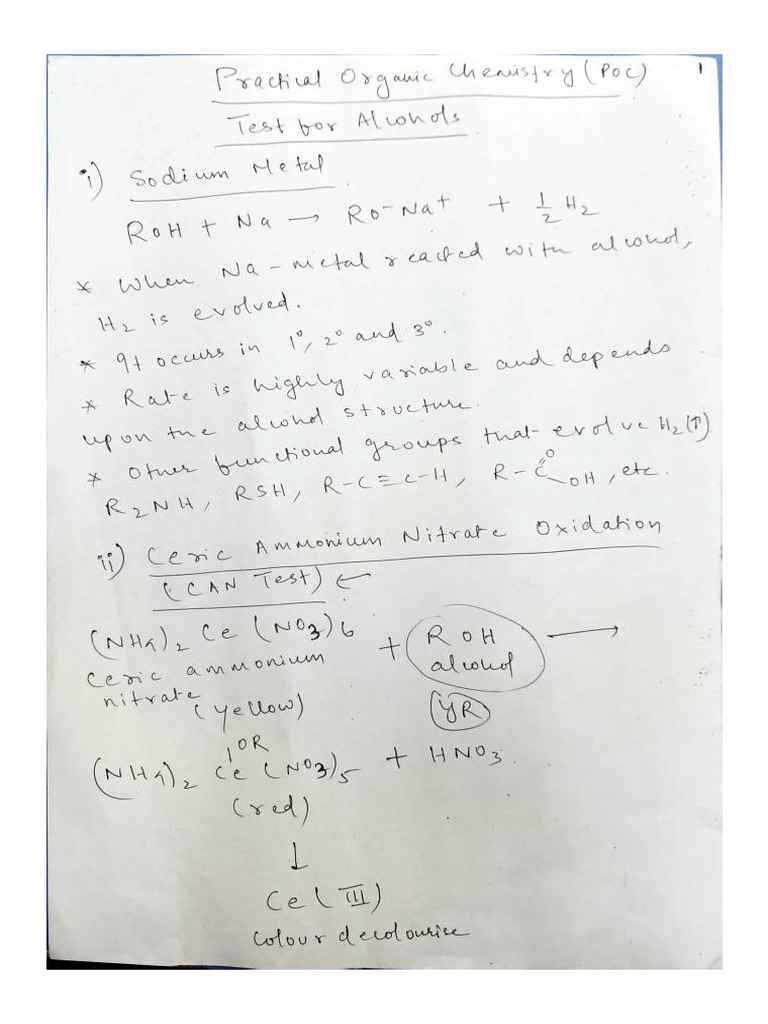 Practical Organic Chemistry (POC) 1
Test for Alcohols
i) Sodium Metal
ROH + Na → RO⁻Na⁺ + 1/2 H₂
* When Na-metal reacted with alcohol,
H₂ is evolved.
* It occurs in 1°, 2° and 3°.
* Rate is highly variable and depends
upon the alcohol structure.
* Other functional groups that evolve H₂(↑)
R₂NH, RSH, R-C≡C-H, R-C(=O)OH, etc.
ii) Ceric Ammonium Nitrate Oxidation
(CAN Test) ←
(NH₄)₂ Ce (NO₃)6 + ROH →
Ceric ammonium alcohol
nitrate
(yellow) YR
OR
(NH₄)₂ Ce (NO₃)₅ + HNO₃.
(red)
↓
Ce (III)
Colour decolourise